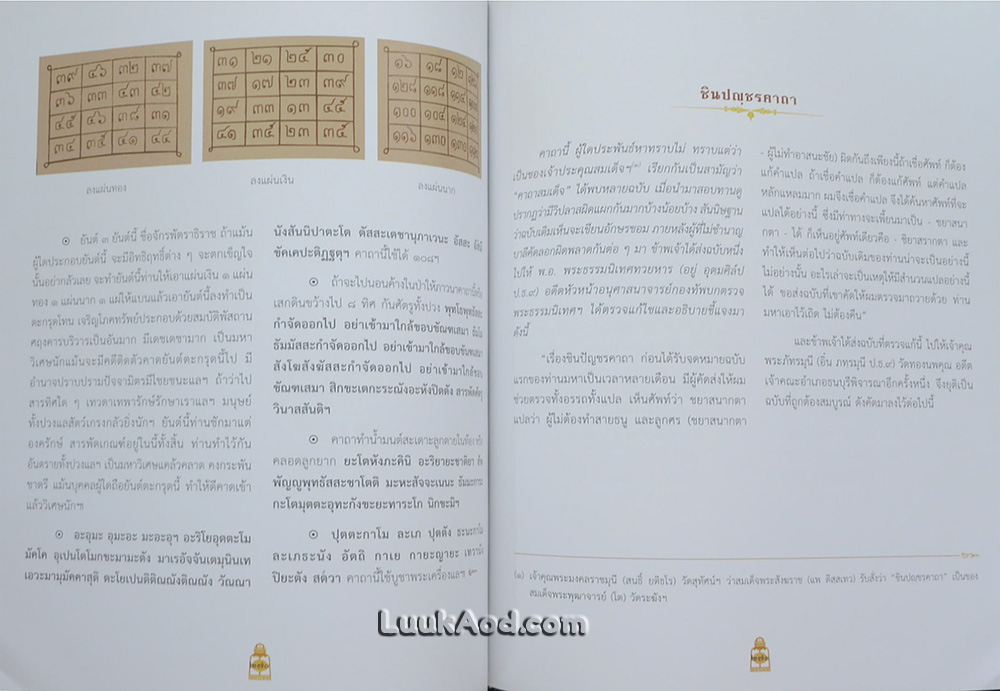 ๓๙ ๔๖ ๓๒ ๓๗
๓๖ ๓๓ ๔๓ ๔๒
๔๕ ๔๖ ๓๘ ๓๑
๓๔ ๓๕ ๔๑ ๔๔
ลงแผ่นทอง
๓๑ ๒๑ ๒๕ ๓๐
๓๗ ๑๗ ๒๓ ๓๙
๑๙ ๓๓ ๑๓ ๔๕
๔๑ ๓๕ ๒๓ ๓๕
ลงแผ่นเงิน
๑๖ ๑๘ ๑๒
๑๒๘ ๑๑๘ ๑๑๔
๑๐๐ ๑๐๔ ๑๒๔
๑๑๖ ๑๓๐ ๑๓๐
ลงแผ่นนาก
๏ ยันต์ ๓ ยันต์นี้ ชื่อจักรพัตราธิราช ถ้าแม้น
ผู้ใดประกอบยันต์นี้ จะมีอิทธิฤทธิ์ต่าง ๆ จะตกเข็ญใจ
นั้นอย่ากลัวเลย จะทำยันต์นี้ท่านให้เอาแผ่นเงิน ๑ แผ่น
ทอง ๑ แผ่นนาก ๑ แผ่ให้แบนแล้วเอายันต์นี้ลงทำเป็น
ตะกรุดโทน เจริญโภคทรัพย์ประกอบด้วยสมบัติพัสถาน
ศฤงคารบริวารเป็นอันมาก มีเดชเดชามาก เป็นมหา
วิเศษนักแม้นจะมีคดีติดตัวคาดยันต์ตะกรุดนี้ไป มี
อำนาจปราบปรามปัจจามิตรมีไชยชนะแลฯ ถ้าว่าไป
สารทิศใด ๆ เทวดาเทพารักษ์รักษาเราแลฯ มนุษย์
ทั้งปวงแลสัตว์เกรงกลัวยิ่งนักฯ ยันต์นี้ท่านชักมาแต่
องครักษ์ สารพัดเกณฑ์อยู่ในนี้ทั้งสิ้น ท่านทำไว้กัน
อันตรายทั้งปวงแลฯ เป็นมหาวิเศษแคล้วคลาด คงกระพัน
ชาตรี แม้นบุคคลผู้ใดถือยันต์ตะกรุดนี้ ทำให้ดีคาดเข้า
แล้ววิเศษนักฯ
๏ อะอุมะ อุมะอะ มะอะอุฯ อะริโยอุดตะโม
มัคโค อุเปนโตโมกขะมามะตัง มาเรอัจจันเตมุนินเท
เอวะมามุมัคคาสุติ ตะโยเปนติติณณังติณณัง วัณณา
นังสันนิปาตะโต ตัสสะเตชานุภาเวนะ อัสสะ
ขัคเคปะติฏฐตุฯ คาถานี้ใช้ได้ ๑๐๘ฯ
๏ ถ้าจะไปนอนค้างในป่าให้ภาวนาคาถานี้
เสกดินขว้างไป ๘ ทิศ กันศัตรูทั้งปวง
กำจัดออกไป อย่าเข้ามาใกล้ขอบขัณฑเสมา
ธัมมัสสะกำจัดออกไป อย่าเข้ามาใกล้ขอบขัณฑเสมา
สังโฆสังฆัสสะกำจัดออกไป อย่าเข้ามาใกล้ขอบ
ขัณฑเสมา สิกขะเตกะระณังอะหังปิตตัง
วินาสสันติฯ
๏ คาถาทำน้ำมนต์สะเดาะลูกตายในท้อง
คลอดลูกยาก ยะโตหังภะคินิ อะริยายะชาติยา
พัญญูพุทธัสสะชาโตติ มะหะสัจจะเนนะ
กะโตมุตตะอุทะกังขะยะทาระโภ นิกขะมิฯ
๏ ปุตตะกาโม ละเภ ปุตตัง
ละเภธะนัง อัตถิ กาเย กายะญายะ
ปิยะตัง สต์วา คาถานี้ใช้บูชาพระเครื่องแลฯ
ชินปญชรคาถา
คาถานี้ ผู้ใดประพันธ์หาทราบไม่ ทราบแต่ว่า
เป็นของเจ้าประคุณสมเด็จฯ(๑) เรียกกันเป็นสามัญว่า
"คาถาสมเด็จ" ได้พบหลายฉบับ เมื่อนำมาสอบทานดู
ปรากฏว่ามีวิปลาสผิดแผกกันมากบ้างน้อยบ้าง สันนิษฐาน
ว่าฉบับเดิมเห็นจะเขียนอักษรขอม ภายหลังผู้ที่ไม่ชำนาญ
บาลีคัดลอกผิดพลาดกันต่อ ๆ มา ข้าพเจ้าได้ส่งฉบับหนึ่ง
ไปให้ พ.อ. พระธรรมนิเทศทวยหาร (อยู่ อุดมศิลป์
ป.ธ.๙) อดีตหัวหน้าอนุศาสนาจารย์กองทัพบกตรวจ
พระธรรมนิเทศฯ ได้ตรวจแก้ไขและอธิบายชี้แจงมา
ดังนี้
"เรื่องชินปัญชรคาถา ก่อนได้รับจดหมายฉบับ
แรกของท่านมาเป็นเวลาหลายเดือน มีผู้คัดส่งให้ผม
ช่วยตรวจทั้งอรรถทั้งแปล เห็นศัพท์ว่า ชยาสนากตา
แปลว่า ผู้ไม่ทำสายธนู และลูกศร (ชยาสนากตา
- ผู้ไม่ทำอาสนะชัย) ผิดกันถึงเพียงนี้ถ้าเชื่อศัพท์ ก็ต้อง
แก้คำแปล ถ้าเชื่อคำแปล ก็ต้องแก้ศัพท์ แต่คำแปล
หลักแหลมมาก ผมจึงเชื่อคำแปล จึงได้ค้นหาศัพท์ที่จะ
แปลได้อย่างนี้ ซึ่งมีท่าทางจะเพี้ยนมาเป็น - ชยาสนา
กตา - ได้ ก็เห็นอยู่ศัพท์เดียวคือ - ชิยาสรากตา และ
ทำให้เห็นต่อไปว่าฉบับเดิมของท่านน่าจะเป็นอย่างนี้
ไม่อย่างนั้น อะไรเล่าจะเป็นเหตุให้มีสำนวนแปลอย่างนี้
ได้ ขอส่งฉบับที่เขาคัดให้ผมตรวจมาถวายด้วย ท่าน
มหาเอาไว้เถิด ไม่ต้องคืน"
และข้าพเจ้าได้ส่งฉบับที่ตรวจแก้นี้ ไปให้เจ้าคุณ
พระภัทรมุนี (อิ๋น ภทรมุนี ป.ธ.๙) วัดทองนพคุณ อดีต
เจ้าคณะอำเภอธนบุรีพิจารณาอีกครั้งหนึ่ง จึงยุติเป็น
ฉบับที่ถูกต้องสมบูรณ์ ดังคัดมาลงไว้ต่อไปนี้
(๑) เจ้าคุณพระมงคลราชมุนี (สนธิ์ ยติธโร) วัดสุทัศน์ฯ ว่าสมเด็จพระสังฆราช (แพ ติสฺสเทว) รับสั่งว่า "ชินปญชรคาถา" เป็นของ
สมเด็จพระพุฒาจารย์ (โต) วัดระฆังฯ
LuukAod.com